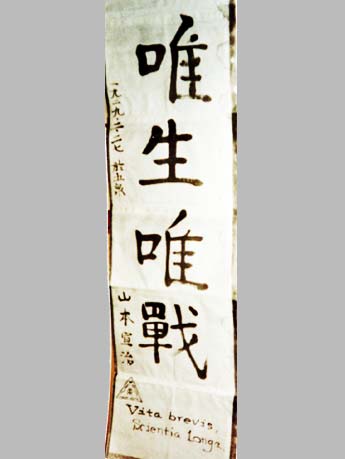 唯生唯戰
一九一九・二・二七 於
山本宣治
Vita brevis,
Scientia Longa